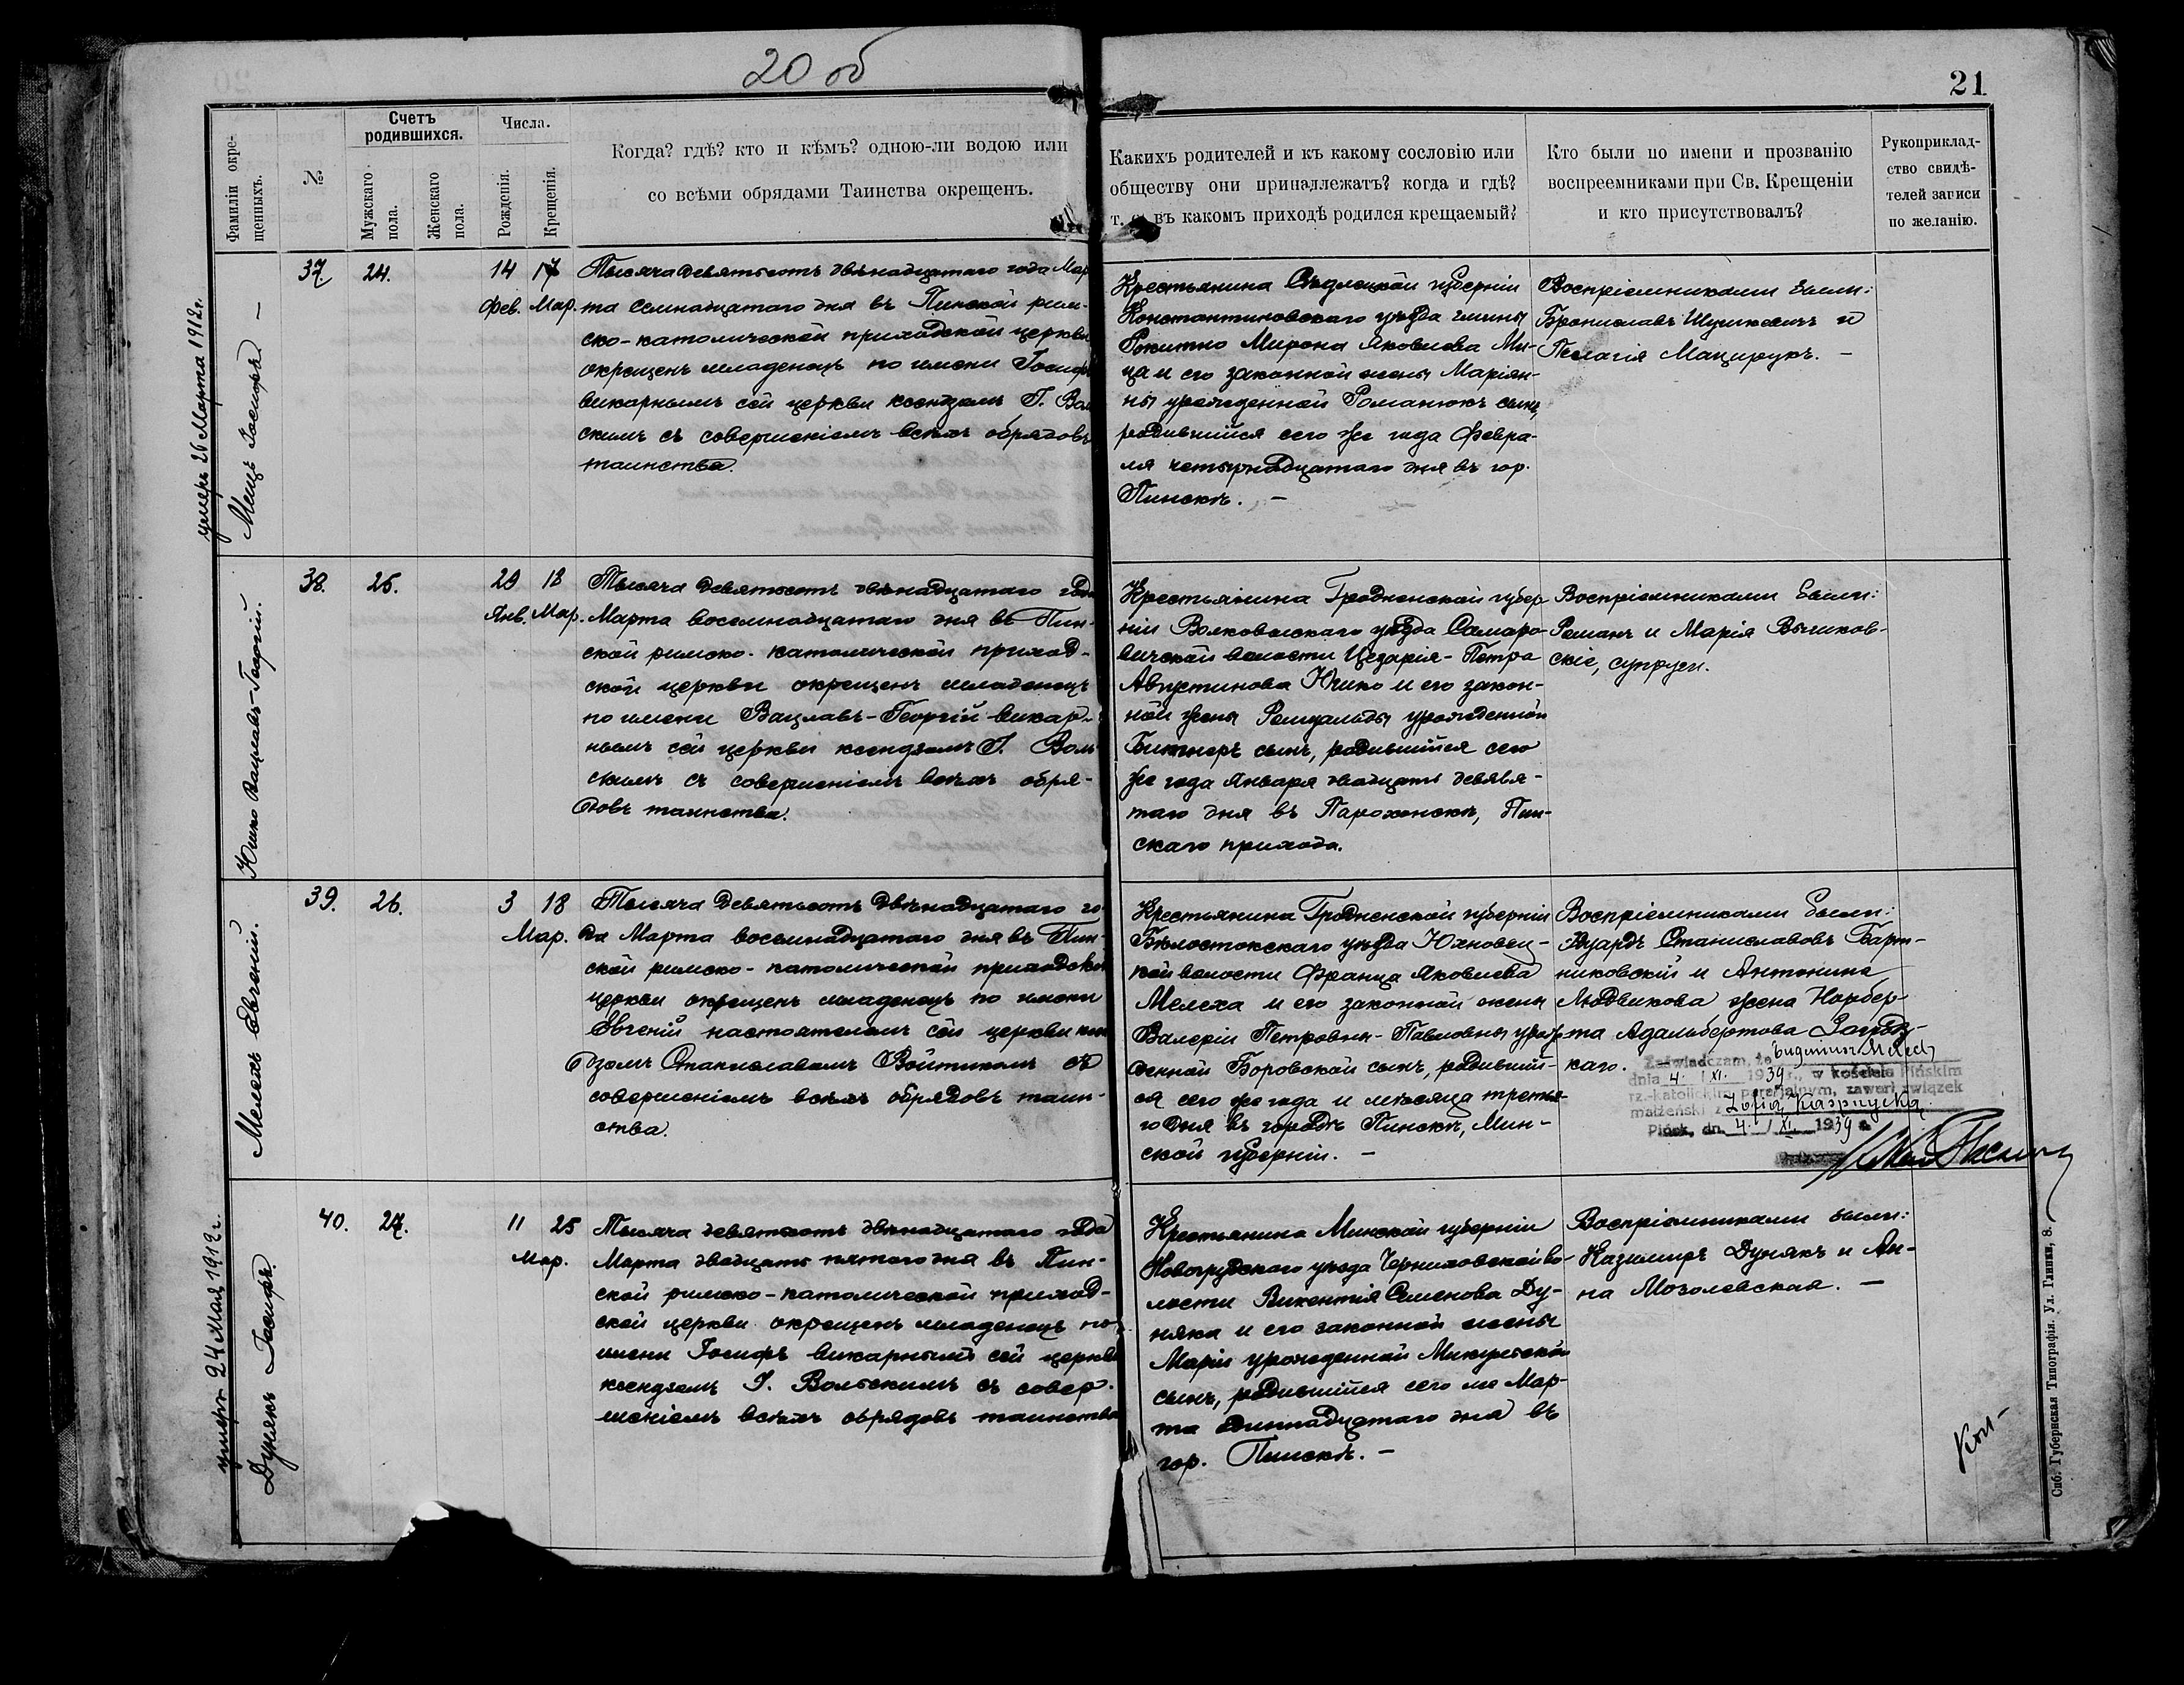 20 об
21
Фамиліи окре-
щенныхъ.
№
Счетъ
родившихся.
Мужскаго
пола.
Женскаго
пола.
Числа.
Рожденія.
Крещенія.
Когда? гдѣ? кто и кѣмъ? одною-ли водою или
со всѣми обрядами Таинства окрещенъ.
Какихъ родителей и къ какому сословію или
обществу они принадлежатъ? когда и гдѣ?
т. е. въ какомъ приходѣ родился крещаемый?
Кто были по имени и прозванію
воспреемниками при Св. Крещеніи
и кто присутствовалъ?
Рукоприклад-
ство свидѣ-
телей записи
по желанію.
умеръ 26 Марта 1912 г.
Мецъ Іосифъ —
37.
24.
14 17
Фев. Мар.
Тысяча девятьсотъ двѣнадцатаго года Мар
та семнадцатаго дня въ Пинской рим-
ско-католической приходской церкви
окрещенъ младенецъ по имени Іосифъ
викарнымъ сей церкви ксендзомъ І. Воль
скимъ съ совершеніемъ всѣхъ обрядовъ
таинства.
Крестьянина Сѣдлецкой губерніи
Константиновскаго уѣзда гмины
Рокитно Мирона Яковлева Ме-
ца и его законной жены Маріян-
ны урожденной Романюкъ сынъ,
родившійся сего же года Февра-
ля четырнадцатаго дня въ гор.
Пинскѣ. —
Воспріемниками были:
Брониславъ Шушкевичъ и
Пелагія Мацирукъ. —
Юшко Вацлавъ-Георгій.
38.
25.
29 18
Янв. Мар.
Тысяча девятьсотъ двѣнадцатаго года
Марта восемнадцатаго дня въ Пин-
ской римско-католической приход-
ской церкви окрещенъ младенецъ
по имени Вацлавъ-Георгій викар-
нымъ сей церкви ксендзомъ І. Воль
скимъ съ совершеніемъ всѣхъ обря-
довъ таинства.
Крестьянина Гродненской губер
ніи Волковыскаго уѣзда Самаро-
вичской волости Цезарія-Петра
Августинова Юшко и его закон-
ной жены Ромуальды урожденной
Битнеръ сынъ, родившійся сего
же года Января двадцать девя-
таго дня въ Парохонскѣ, Пин-
скаго прихода.
Воспріемниками были:
Романъ и Марія Вычиков-
скіе, супруги.
Мелехъ Евгеній.
39.
26.
3 18
Мар.
Тысяча девятьсотъ двѣнадцатаго го-
да Марта восемнадцатаго дня въ Пин-
ской римско-католической приходской
церкви окрещенъ младенецъ по имени
Евгеній настоятелемъ сей церкви ксен
дзомъ Станиславомъ Войтикомъ съ
совершеніемъ всѣхъ обрядовъ таин-
ства.
Крестьянина Гродненской губерніи
Бѣлостокскаго уѣзда Юхновец-
кой волости Франца Яковлева
Мелеха и его законной жены
Валеріи Петровны-Павловны урож
денной Боровской сынъ, родивший-
ся сего же года и мѣсяца третья-
го дня въ городѣ Пинскѣ, Мин-
ской губерніи. —
Воспріемниками были:
Эдуардъ Станиславовъ Барт-
никовскій и Антонина
Людвикова жена Норбер-
та Адальбертова
каго.
Zaświadczam, że Eugeniusz Melech
dnia 4. XI. 1939 r., w kościele Pińskim
rz.-katolickim parafjalnym, zawarł związek
małżeński z Zofią Kasprzycką
Pińsk, dn. 4. XI 1939 r.
умеръ 24 Мая 1912 г.
Дунякъ Іосифъ.
40.
27.
11 25
Мар.
Тысяча девятьсотъ двѣнадцатаго года
Марта двадцать пятаго дня въ Пин-
ской римско-католической приход-
ской церкви окрещенъ младенецъ по
имени Іосифъ викарнымъ сей церкви
ксендзомъ І. Вольскимъ съ совер-
шеніемъ всѣхъ обрядовъ таинства
Крестьянина Минской губерніи
Новогрудскаго уѣзда Черниховской во-
лости Викентія Семенова Ду-
няка и его законной жены
Маріи урожденной Микульской
сынъ, родившійся сего же Мар-
та одиннадцатаго дня въ
гор. Пинскѣ. —
Воспріемниками были:
Казимиръ Дунякъ и Ан-
на Мозолевская. —
Спб. Губернская Типографія. Ул. Глинки, 8.